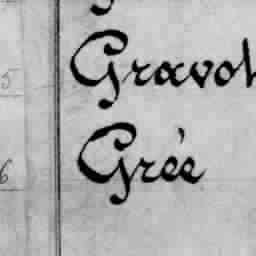 5 Gravot
6 Grée